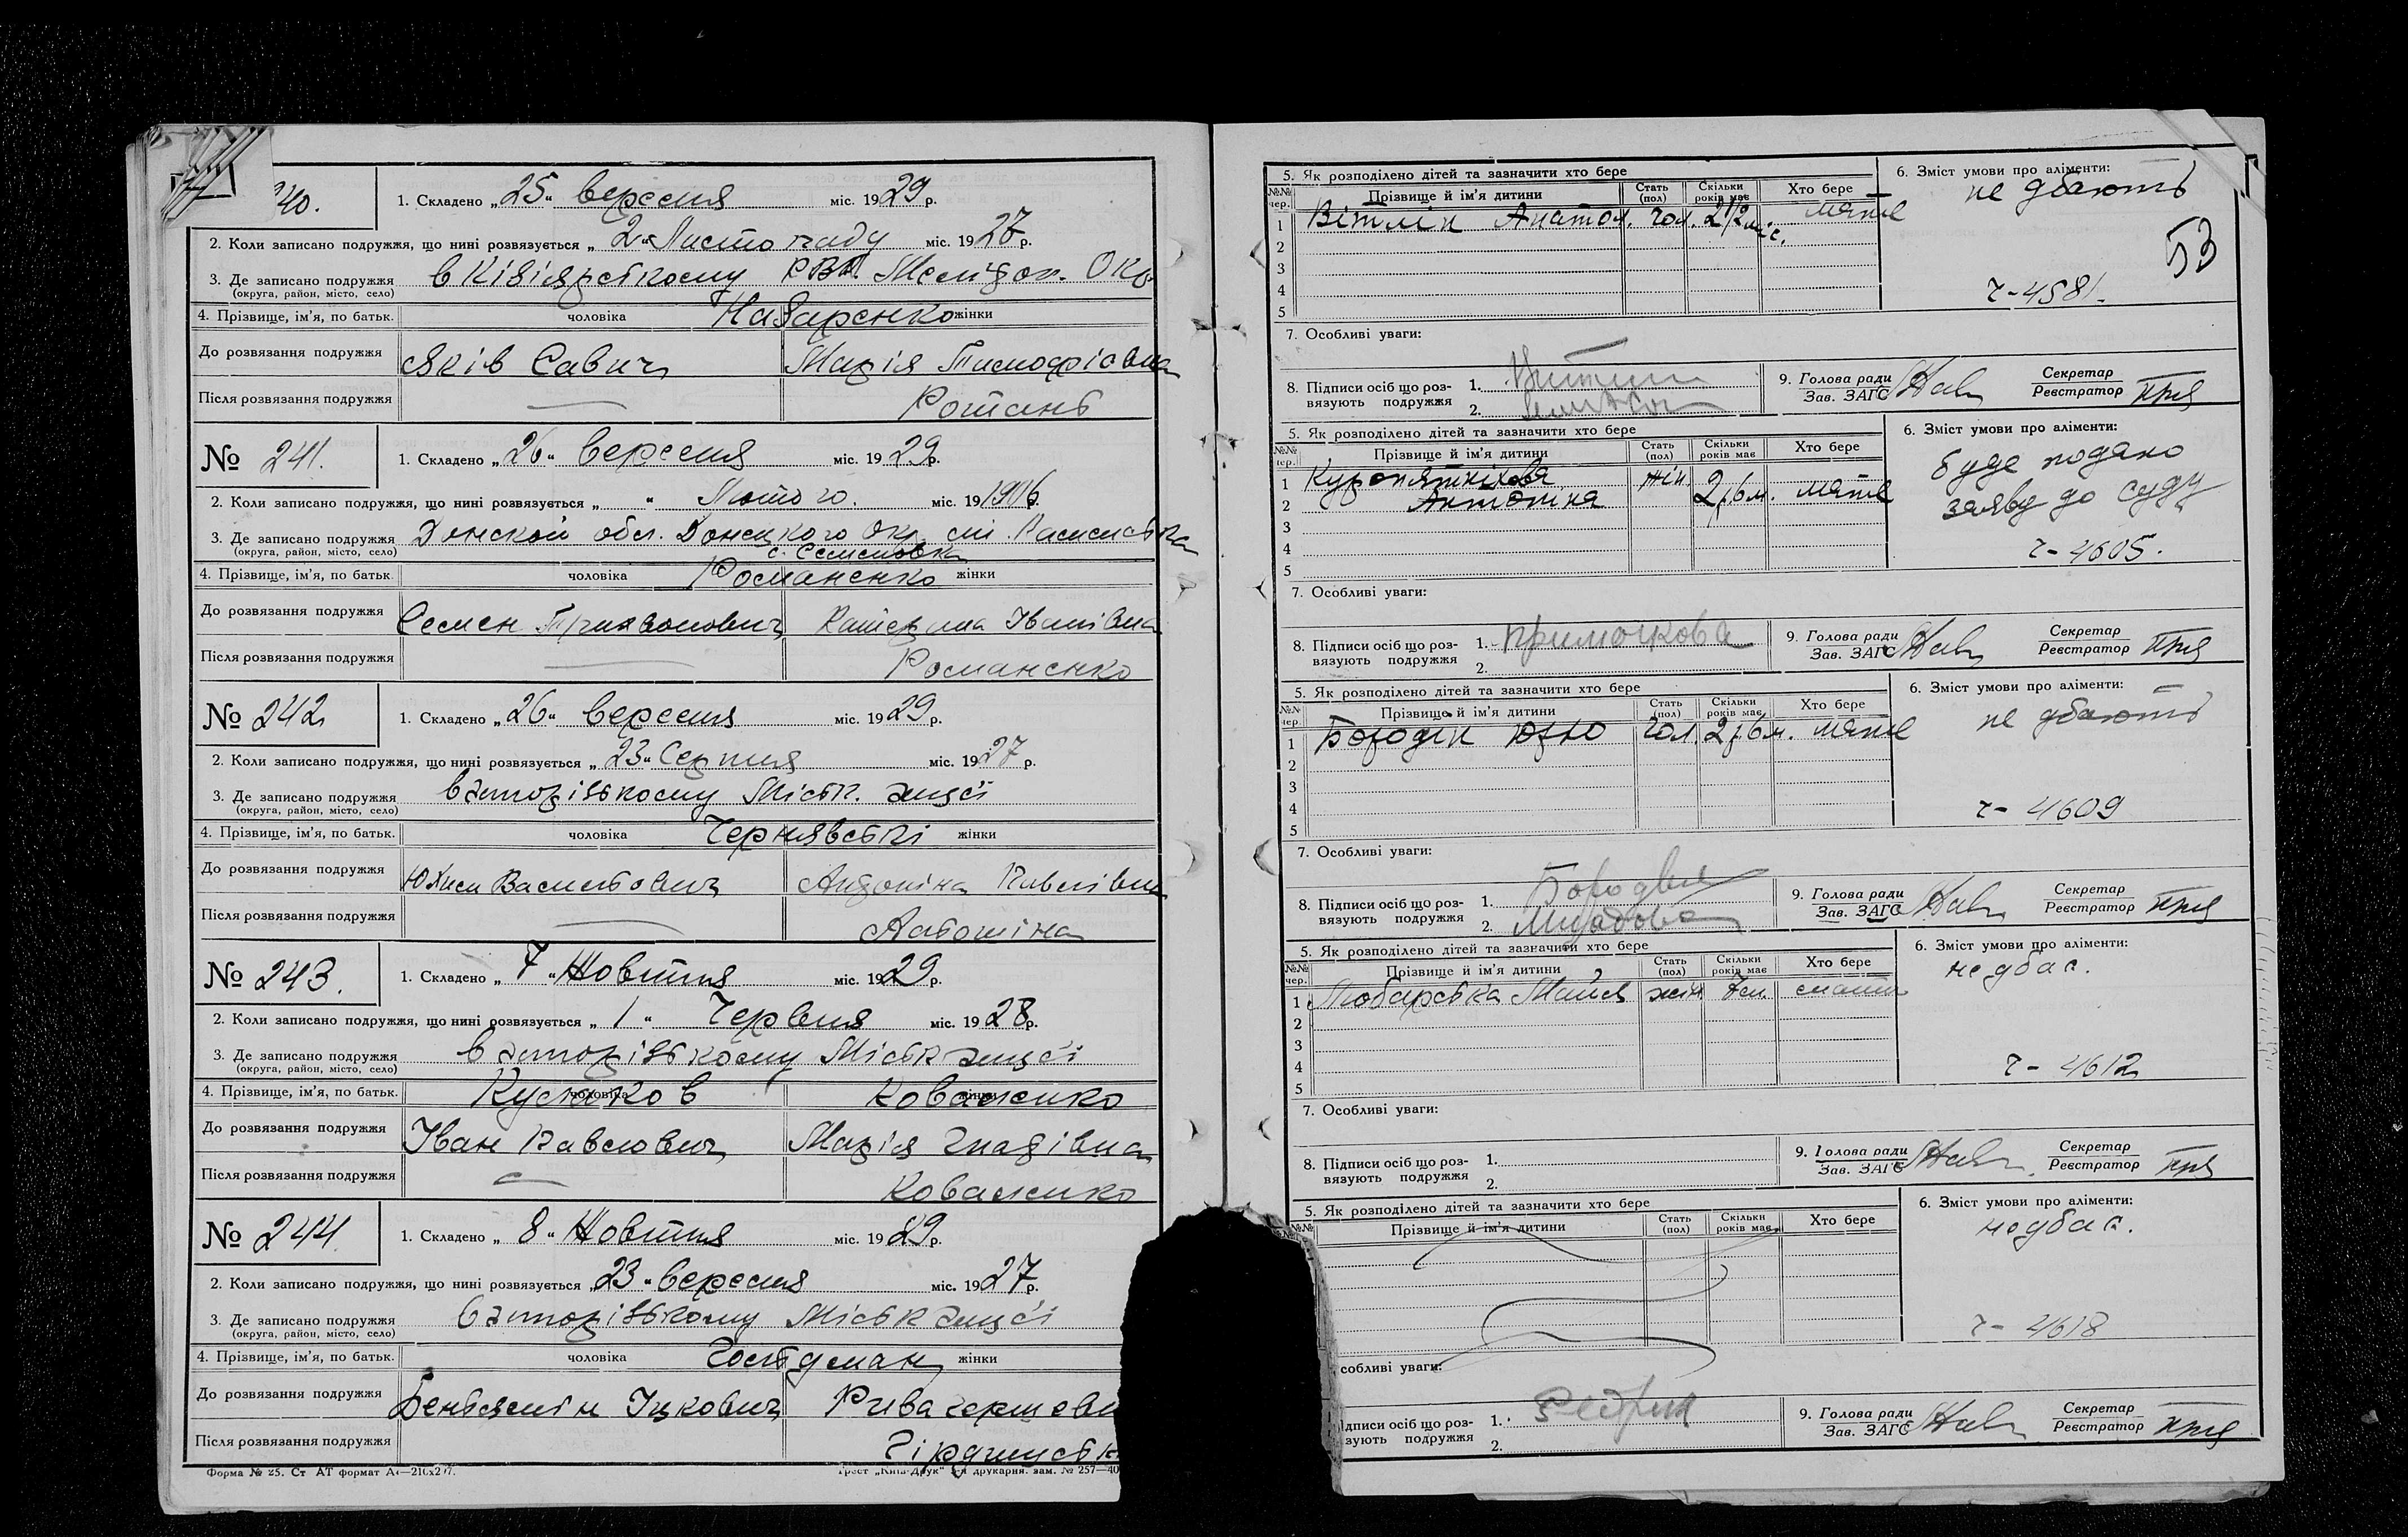 240.
1. Складено „25“ вересня міс. 1929 р.
2. Коли записано подружжя, що нині розвязується „2“ Листопаду міс. 1927 р.
3. Де записано подружжя
(округа, район, місто, село)
4. Прізвище, ім'я, по батьк. чоловіка Назаренко жінки
До розвязання подружжя Яків Савич Марія Тимофіївна
Після розвязання подружжя — Ротань
№ 241.
1. Складено „26“ вересня міс. 1929 р.
2. Коли записано подружжя, що нині розвязується „ “ Лютого. міс. 19 1906 р.
3. Де записано подружжя Донской обл. Донецкого Окр.
(округа, район, місто, село) с. Семеновка
4. Прізвище, ім'я, по батьк. чоловіка Романенко жінки
До розвязання подружжя Семен Трихвонович Катерина Іванівна
Після розвязання подружжя — Романенко
№ 242
1. Складено „26“ вересня міс. 1929 р.
2. Коли записано подружжя, що нині розвязується „23“ Серпня міс. 1927 р.
3. Де записано подружжя в Запорізькому Міськ. Загсі
(округа, район, місто, село)
4. Прізвище, ім'я, по батьк. чоловіка Чернявські жінки
До розвязання подружжя Юхим Васильович Павлівна
Після розвязання подружжя —
№ 243.
1. Складено „7“ Жовтня міс. 1929 р.
2. Коли записано подружжя, що нині розвязується „1“ Червня міс. 1928 р.
3. Де записано подружжя в Запорізькому Міськ Загсі
(округа, район, місто, село)
4. Прізвище, ім'я, по батьк. чоловіка Кулаков жінки Коваленко
До розвязання подружжя Іван Павлович Марія Гнатівна
Після розвязання подружжя — Коваленко
№ 244.
1. Складено „8“ Жовтня міс. 1929 р.
2. Коли записано подружжя, що нині розвязується „23“ вересня міс. 1927 р.
3. Де записано подружжя в Запорізькому Міськ Загсі
(округа, район, місто, село)
4. Прізвище, ім'я, по батьк. чоловіка Гольдман жінки
До розвязання подружжя Беньямін Іцкович Рива
Після розвязання подружжя
Форма № 25. Ст АТ формат А4—210х297.
Трест „Київ-Друк“ друкарня. зам. № 257—40
5. Як розподілено дітей та зазначити хто бере
6. Зміст умови про аліменти:
не дбають
№№ чер. Прізвище й ім'я дитини Стать (пол) Скільки років має Хто бере
1 Вітлін Анатол. чол. 2 1/2 міс. мати
2
3
4
5
53
ч-4581.
7. Особливі уваги:
8. Підписи осіб що роз-
вязують подружжя
1.
2.
9. Голова ради
Зав. ЗАГС
Секретар
Реєстратор
5. Як розподілено дітей та зазначити хто бере
6. Зміст умови про аліменти:
буде подано
заяву до суду
ч-4605.
№№ чер. Прізвище й ім'я дитини Стать (пол) Скільки років має Хто бере
1 Куропятнікова жін.
2 2р.6м. мати
3
4
5
7. Особливі уваги:
8. Підписи осіб що роз-
вязують подружжя
1.
2.
9. Голова ради
Зав. ЗАГС
Секретар
Реєстратор
5. Як розподілено дітей та зазначити хто бере
6. Зміст умови про аліменти:
не дбають
№№ чер. Прізвище й ім'я дитини Стать (пол) Скільки років має Хто бере
1 чол. 2р.6м. мати
2
3
4
5
ч-4609
7. Особливі уваги:
8. Підписи осіб що роз-
вязують подружжя
1.
2.
9. Голова ради
Зав. ЗАГС
Секретар
Реєстратор
5. Як розподілено дітей та зазначити хто бере
6. Зміст умови про аліменти:
не дбає.
№№ чер. Прізвище й ім'я дитини Стать (пол) Скільки років має Хто бере
1 Любарська Майя жін 7м мати
2
3
4
5
ч-4612
7. Особливі уваги:
8. Підписи осіб що роз-
вязують подружжя
1.
2.
9. Голова ради
Зав. ЗАГС
Секретар
Реєстратор
5. Як розподілено дітей та зазначити хто бере
6. Зміст умови про аліменти:
не дбає.
№№ Прізвище й ім'я дитини Стать (пол) Скільки років має Хто бере
ч-4618
собливі уваги:
ідписи осіб що роз-
зують подружжя
1.
2.
9. Голова ради
Зав. ЗАГС
Секретар
Реєстратор